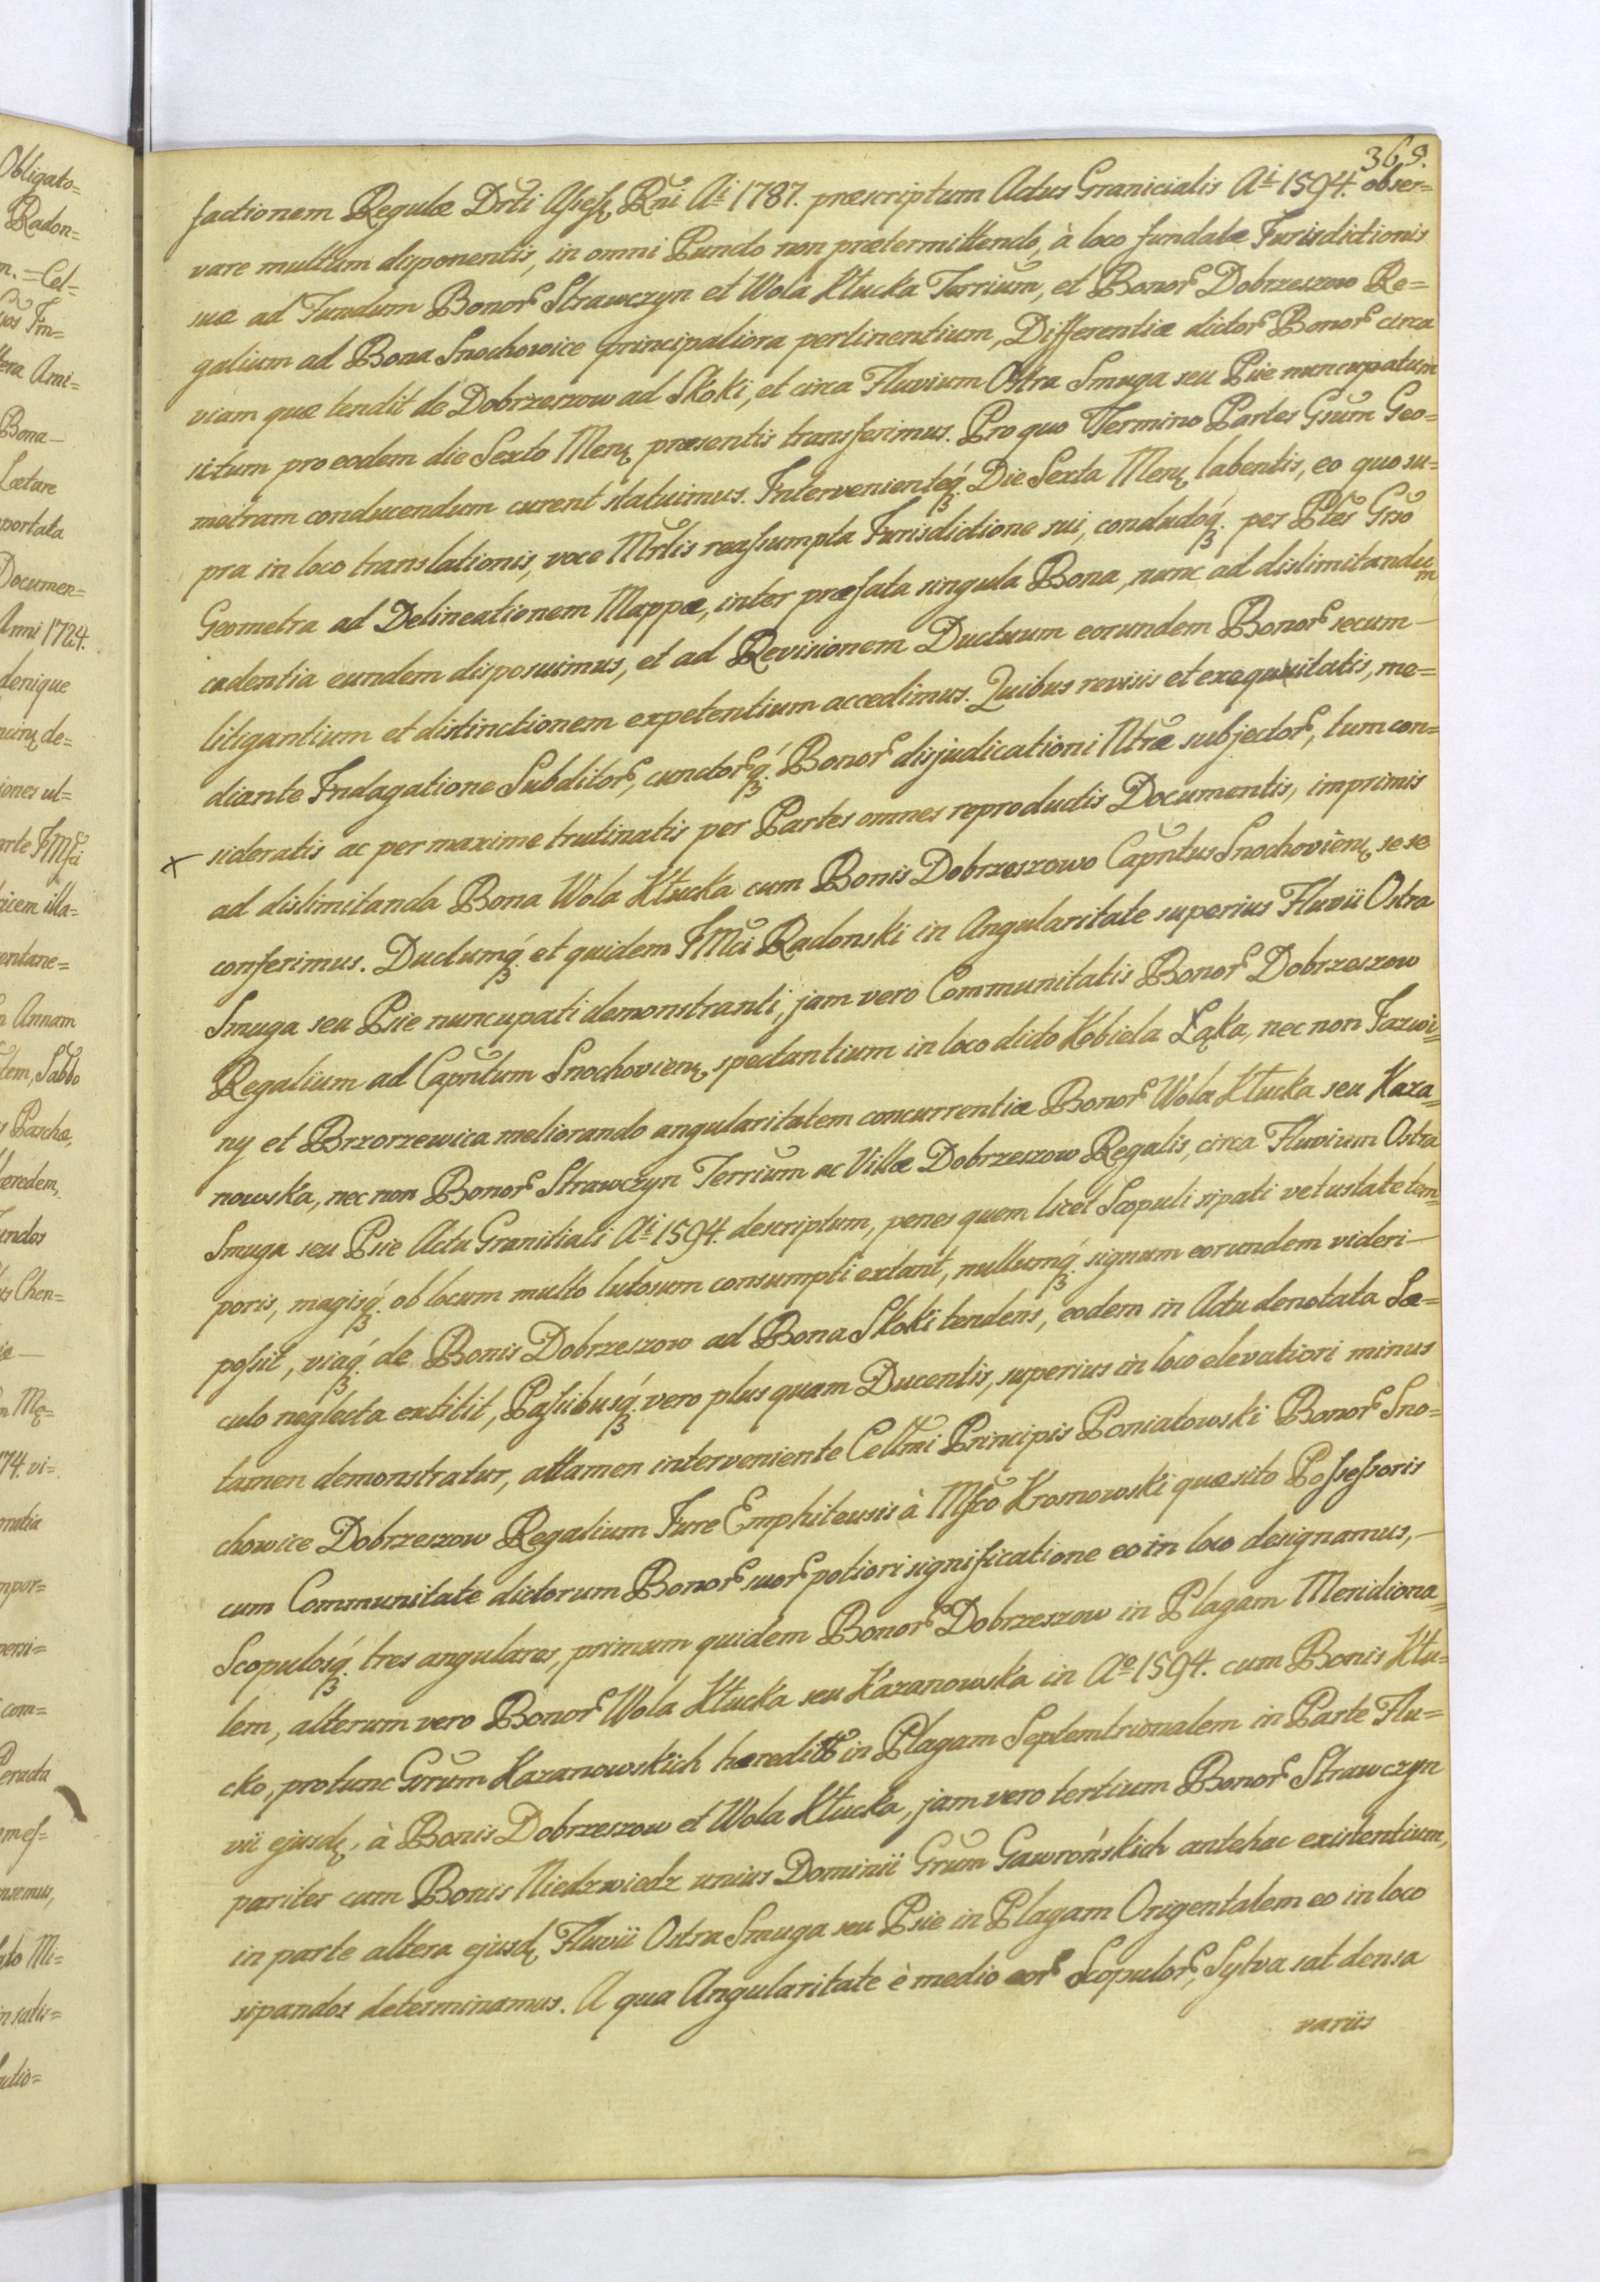 369.
factionem Regulæ Drti Assessę Rni Ai 1787. præscriptum Actus Granicialis Ai 1594. obser=
vare multum disponentis, in omni Puncto non prætermittendo, à loco fundatæ Jurisdictionis
suæ ad Fundum Bonor Strawczyn et Wola Kłucka Terrium, et Bonor Dobrzeszow Re=
galium ad Bona Snochowice principaliora pertinentium, Differentiæ dictor Bonor circa
viam quæ tendit de Dobrzeszow ad Skoki, et circa Fluvium Ostra Smuga seu Psie nuncupatum
situm pro eodem die Sexto Mens præsentis transferimus. Pro quo Termino Partes Grum Geo=
metram conducendum curent statuimus. Intervenienteq. Die Sexta Mens labentis, eo quo su=
pra in loco translationis, voce Mrlis reassumpta Jurisdictione sui, conductoq. per Ptes Grso
Geometra ad Delineationem Mappæ, inter præfata singula Bona, nunc ad dislimitandum
cadentia eundem disposuimus, et ad Revisionem Ductuum eorundem Bonor secum—
litigantium et distinctionem expetentium accedimus. Quibus revisis et exequitatis, me=
diante Indagatione Subditor, cunctorq. Bonor disjudicationi Ntræ subjector, tum con=
sideratis ac per maxime trutinatis per Partes omnes reproductis Documentis, imprimis
ad dislimitanda Bona Wola Kłucka cum Bonis Dobrzeszowo Capntus Snochoviens se se
conferimus. Ductumq. et quidem JMci Radonski in Angularitate superius Fluvii Ostra
Smuga seu Psie nuncupati demonstranti, jam vero Communitatis Bonor Dobrzeszow
Regalium ad Capntum Snochoviens spectantium in loco dicto Kobiela Łąka, nec non Jazwi=
ny et Brzorzewica meliorando angularitatem concurrentiæ Bonor Wola Kłucka seu Kaza=
nowska, nec non Bonor Strawczyn Terrium ac Villæ Dobrzeszow Regalis, circa Fluvium Ostra
Smuga seu Psie Actu Granitiali Ai 1594. descriptum, penes quem licet Scopuli sipati vetustate tem=
poris, magisq. ob locum multo lutosum consumpti extant, nullumq. signum eorundem videri—
possit, viaq. de Bonis Dobrzeszow ad Bona Skoki tendens, eodem in Actu denotata Sæ=
culo neglecta extitit, Passibusq. vero plus quam Ducentis, superius in loco elevatiori minus
tamen demonstratur, attamen interveniente Cellmi Principis Poniatowski Bonor Sno=
chowice Dobrzeszow Regalium Jure Emphiteusis à Mfco Kromowski quæsito Possessoris
cum Communitate dictorum Bonor suor potiori significatione eo in loco designamus,—
Scopulosq. tres angulares, primum quidem Bonor Dobrzeszow in Plagam Meridiona=
lem, alterum vero Bonor Wola Kłucka seu Kazanowska in Ao 1594. cum Bonis Kłu=
cko, protunc Grum Kazanowskich hæredit in Plagam Septemtrionalem in Parte Flu=
vii ejusdę, à Bonis Dobrzeszow et Wola Kłucka, jam vero tertium Bonor Strawczyn
pariter cum Bonis Niedzwiedz unius Dominii Grum Gawrońskich antehac existentium,
in parte altera ejusdę Fluvii Ostra Smuga seu Psie in Plagam Origentalem eo in loco
sipandos determinamus. A qua Angularitate è medio eor Scopulor, Sylva sat densa
variis